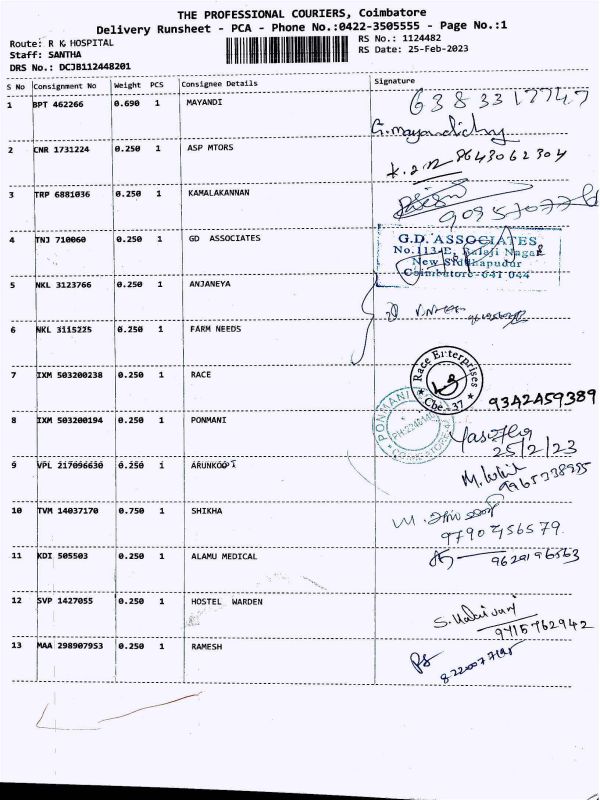 THE PROFESSIONAL COURIERS, Coimbatore
Delivery Runsheet - PCA - Phone No.:0422-3505555 - Page No.:1
Route: R K HOSPITAL
RS No.: 1124482
Staff: SANTHA
RS Date: 25-Feb-2023
DRS No.: DCJB112448201
S No Consignment No Weight PCS Consignee Details Signature
1 BPT 462266 0.690 1 MAYANDI
6383317747
G.mayandichy
2 CNR 1731224 0.250 1 ASP MTORS
8643062304
3 TRP 6881036 0.250 1 KAMALAKANNAN
4 TNJ 710060 0.250 1 GD ASSOCIATES
G.D. ASSOCIATES
No.113-E, Balaji Nagar
New Siddhapudur
Coimbatore-641 044
5 NKL 3123766 0.250 1 ANJANEYA
6 NKL 3115225 0.250 1 FARM NEEDS
7 IXM 503200238 0.250 1 RACE
Race Enterprises
Cbe-37
93A2A59389
8 IXM 503200194 0.250 1 PONMANI
PONMANI
25/2/23
9 VPL 217096630 0.250 1 ARUNKOOT
10 TVM 14037170 0.750 1 SHIKHA
9790456579
11 KDI 505503 0.250 1 ALAMU MEDICAL
9629196563
12 SVP 1427055 0.250 1 HOSTEL WARDEN
9715762942
13 MAA 298907953 0.250 1 RAMESH